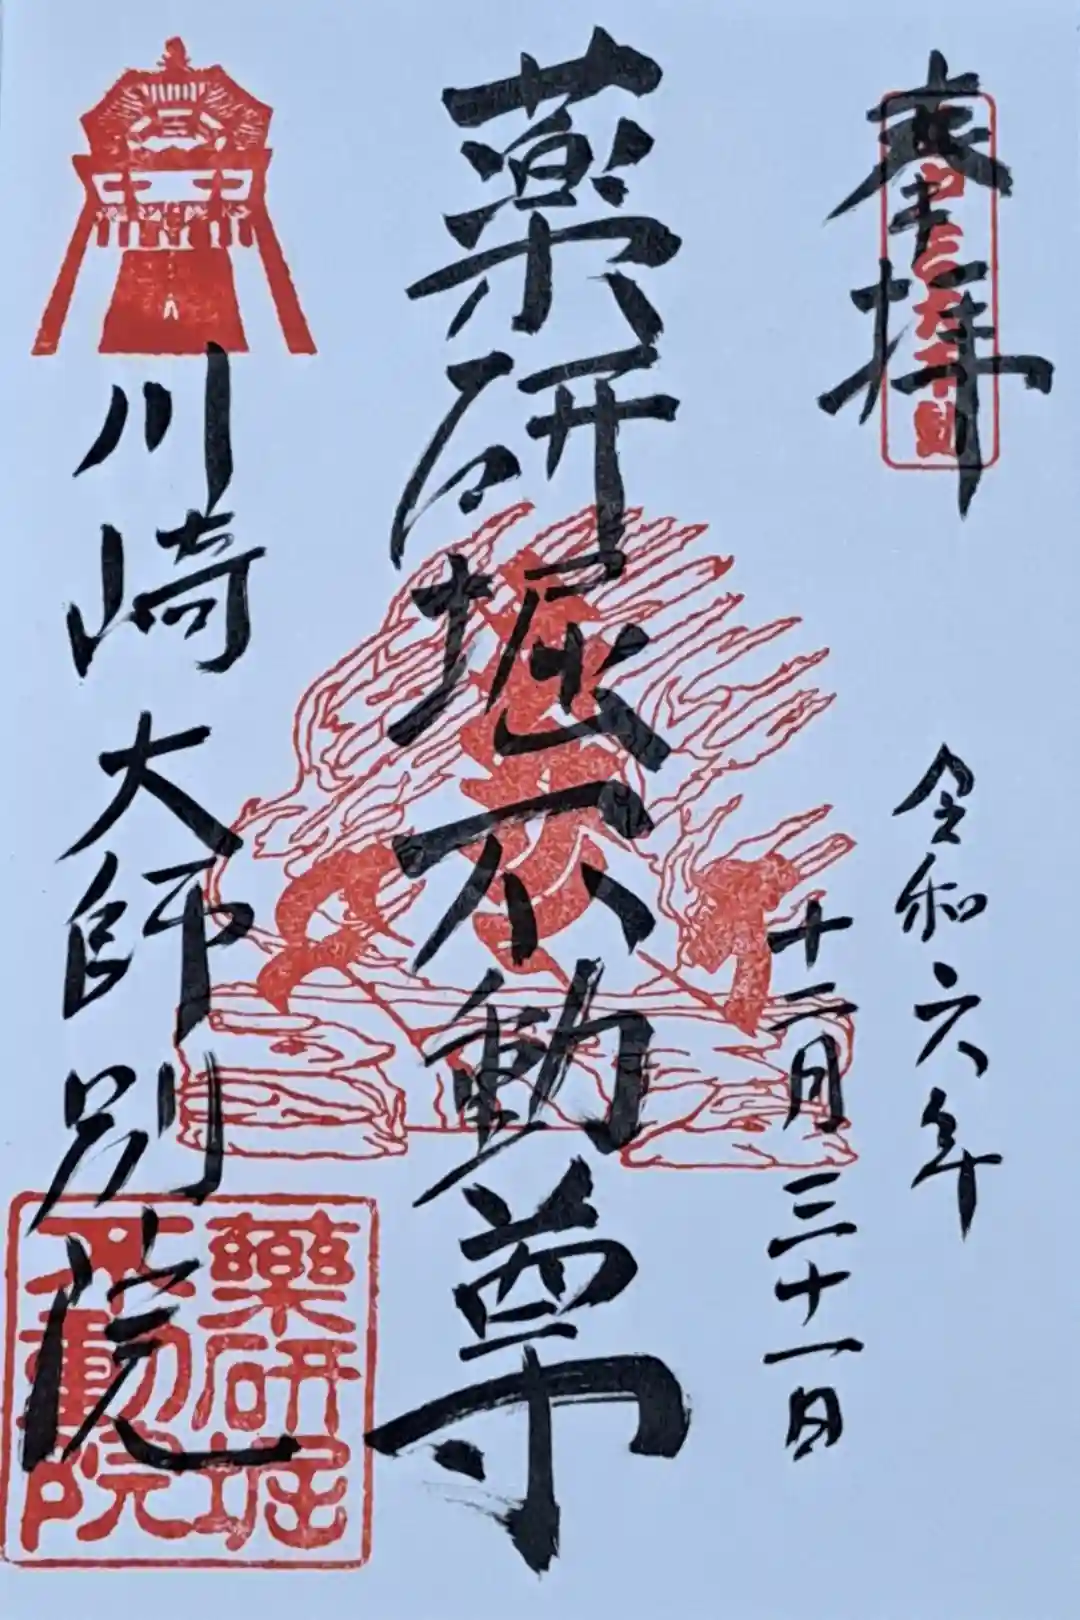 奉拝
令和六年
十二月三十一日
薬研堀不動尊
川崎大師別院
薬研堀
不動院